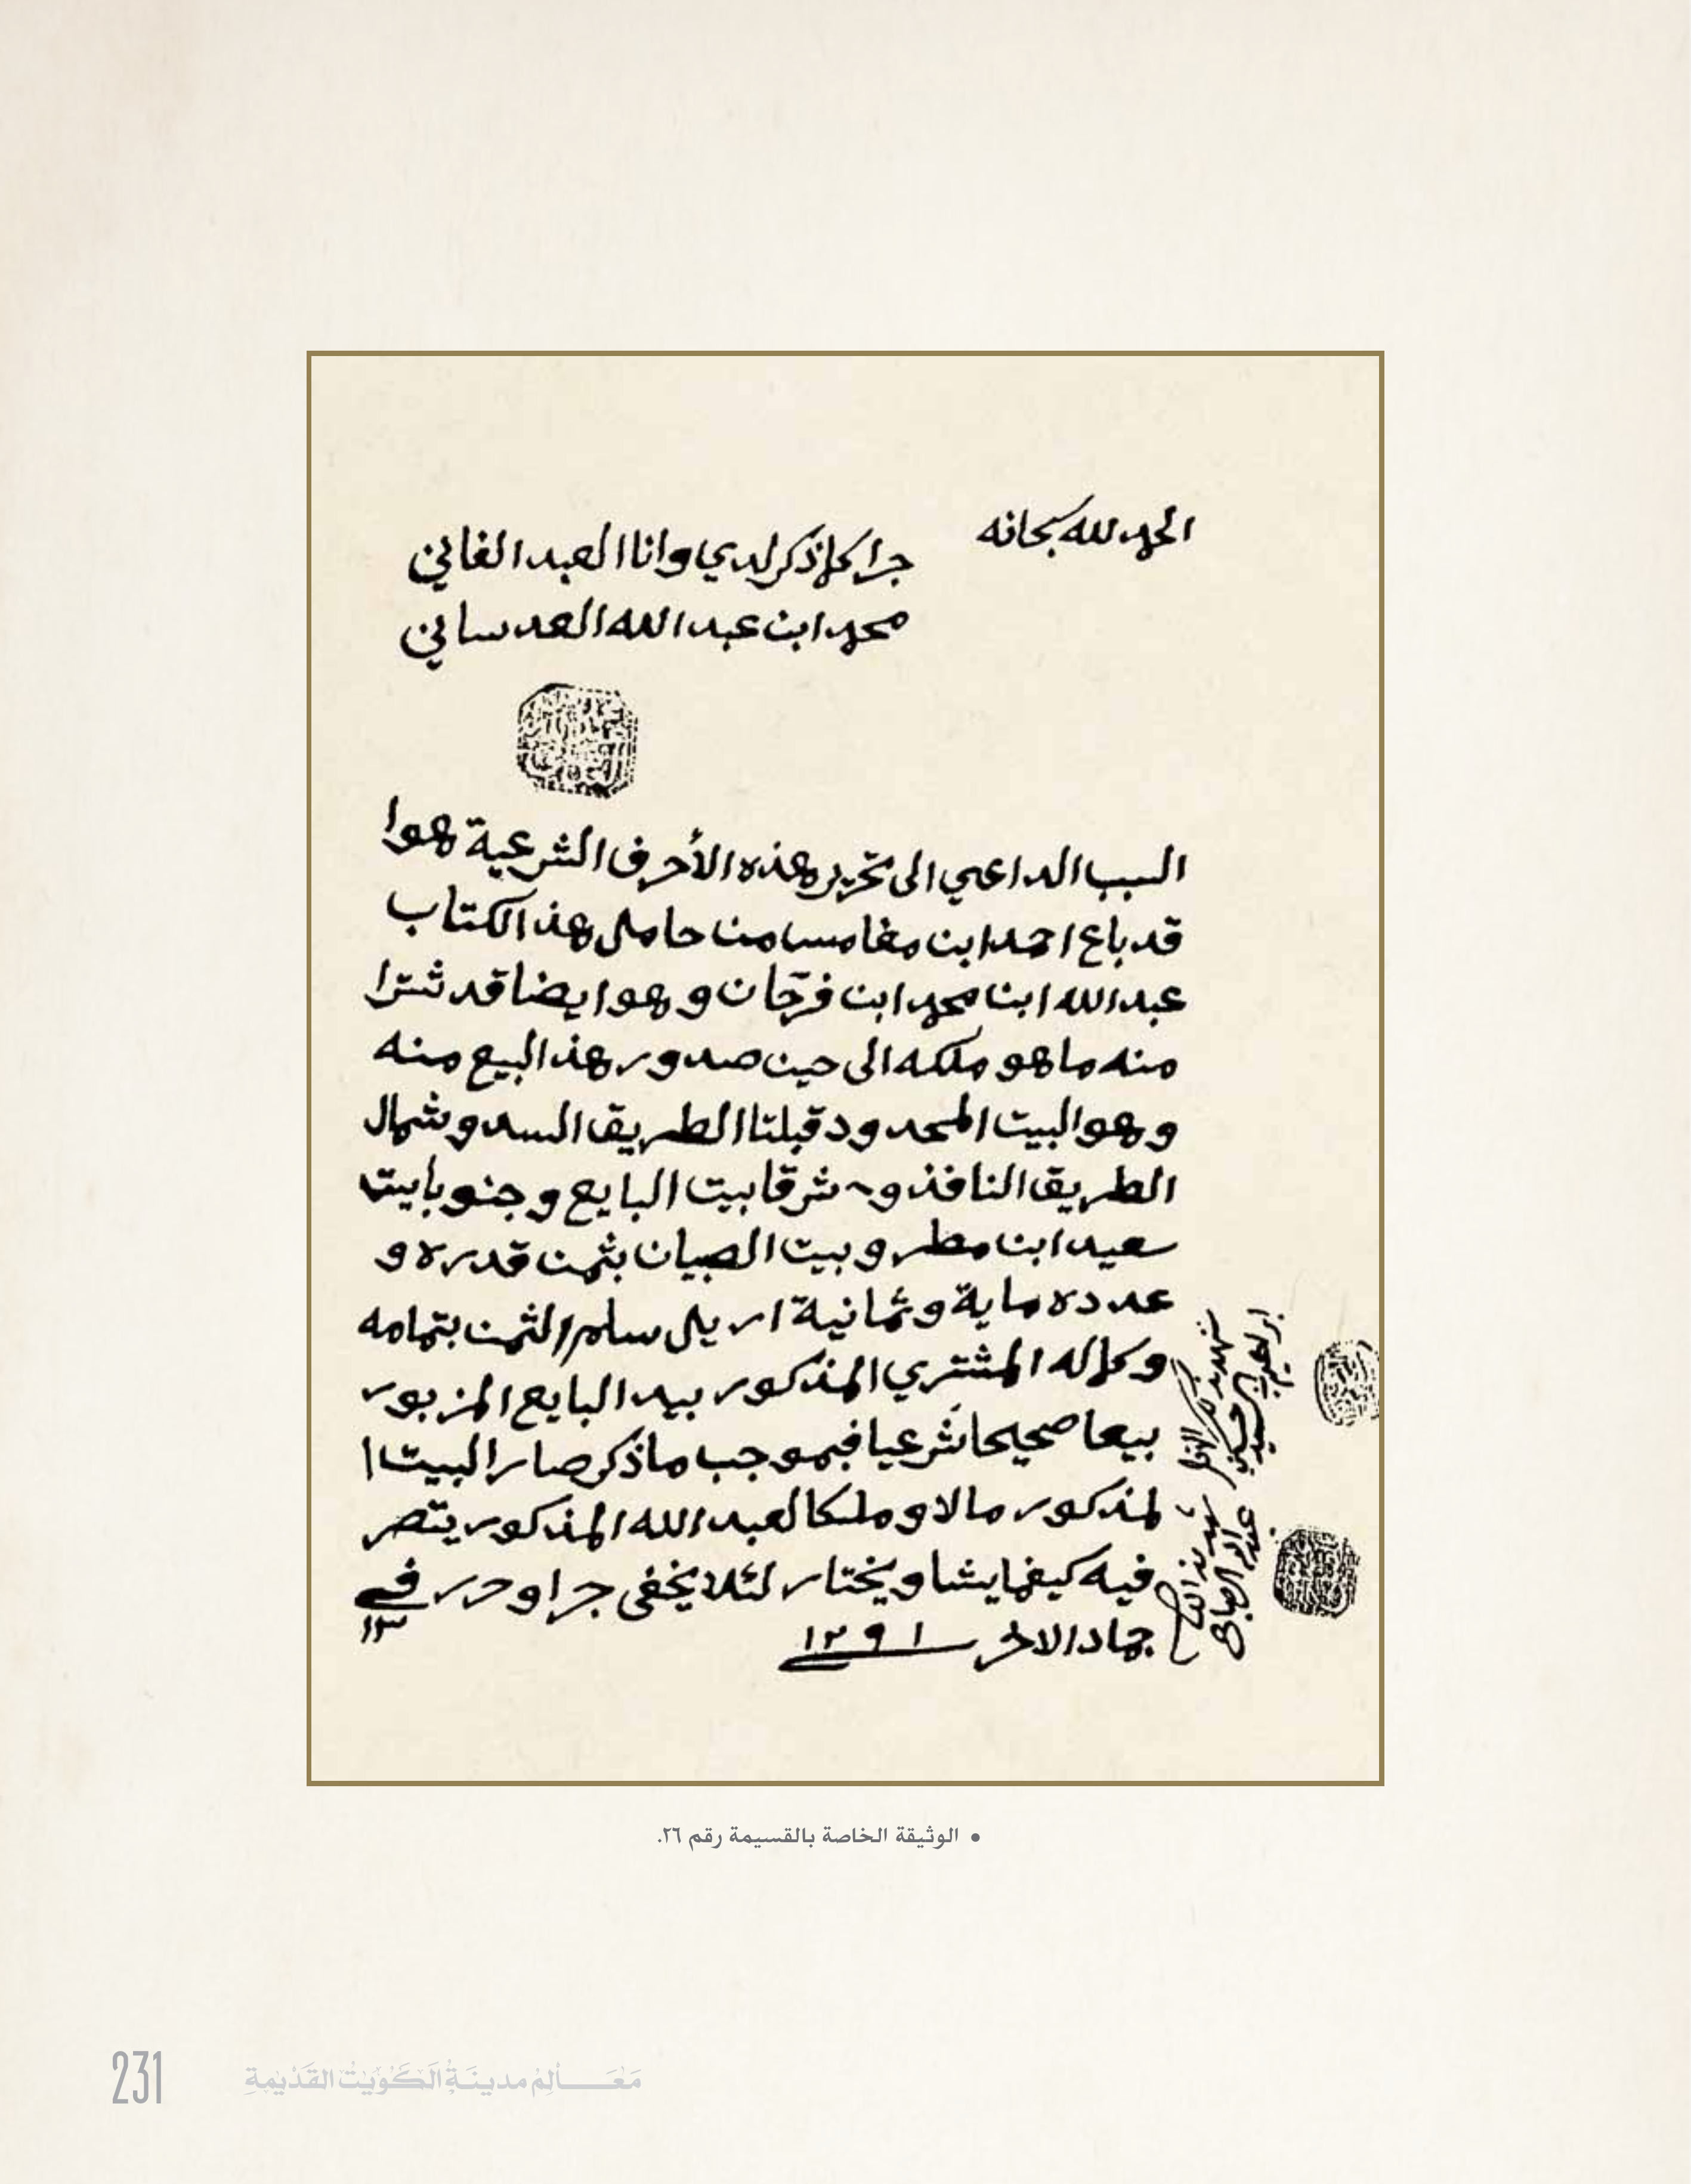 الحمد لله سبحانه
جرا كلما ذكر لدي وانا العبد الفاني
محمد ابن عبد الله العدساني
السبب الداعي الى تحرير هذه الأحرف الشرعية هوا
قد باع احمد ابن مغامسا منا حامل هذ الكتاب
عبد الله ابنا محمد ابن فرحان وهوا ايضا قد شترا
منه ما هو ملكه الى حين صدور هذ البيع منه
وهو البيت المحدود قبلتا الطريق السد وشمال
الطريق النافذ و شرقا بيت البايع وجنوبا بيت
سعيد ابن مطر وبيت الصبيان بثمن قدره و
عدده ماية وثمانية اريل سلم الثمن بتمامه
وكماله المشتري المذكور بيد البايع المزبور
بيعا صحيحا شرعيا فبموجب ما ذكر صار البيت ا
لمذكور مالا وملكا لعبد الله المذكور يتصر
فيه كيفما يشا ويختار لئلا يخفى جرا وحرر في ١٣
جماد الاخر ١٢٩١
شهد بذلك
ابراهيم
شهد بذالك
• الوثيقة الخاصة بالقسيمة رقم ٢٦.
231 مَعَالِم مدينَة الكُوَيْت القَدْيمةِ